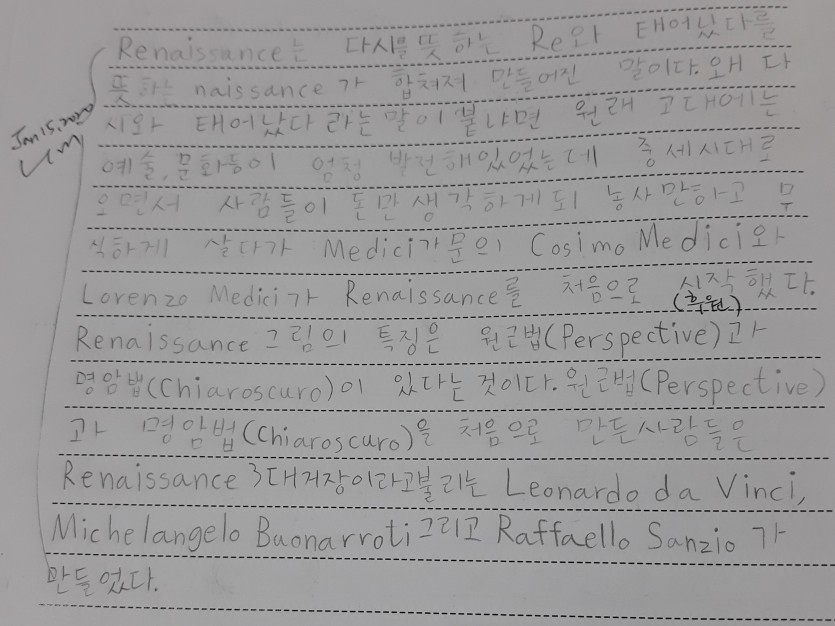 Renaissance는 다시를 뜻 하는 Re와 태어났다를
뜻 하는 naissance가 합쳐져 만들어진 말이다. 왜 다
시와 태어났다 라는 말이 붙냐면 원래 고대에는
예술, 문화등이 엄청 발전해있었는데 중세시대로
오면서 사람들이 돈만 생각하게되 농사만하고 무
식하게 살다가 Medici가문의 Cosimo Medici와
Lorenzo Medici가 Renaissance를 처음으로 시작했다.
(후원)
Renaissance 그림의 특징은 원근법(Perspective)과
명암법(Chiaroscuro)이 있다는 것이다. 원근법(Perspective)
과 명암법(Chiaroscuro)을 처음으로 만든사람들은
Renaissance 3대거장이라고불리는 Leonardo da Vinci,
Michelangelo Buonarroti 그리고 Raffaello Sanzio 가
만들었다.